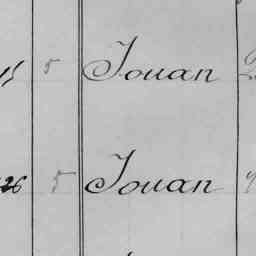 5 Jouan
26 5 Jouan